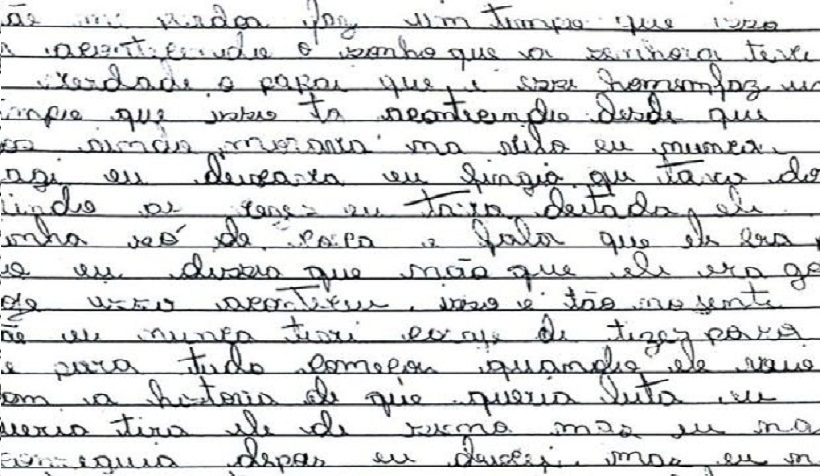 mi perdoa faz um tempo que isso
acontesendo o sonho que a senhora teve
verdade o papai que e esse homem faz um
que isso ta acontecendo desde que
ainda morava na vila eu nunca
eu deixava eu fingia qu tava do
indo as vezes eu tava deitada ele
inha só de e falar que ele era
eu dissia que não que ele era
isso aconteceu isso e tão
eu nunca tivi de tizez para
para tudo começou quando ele veio
om a historia de que queria luta eu
ueria tira ele de sima mas eu na
onseguia depos eu mas eu n